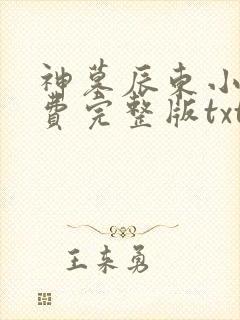 神墓辰东小
费完整版txt
王来勇